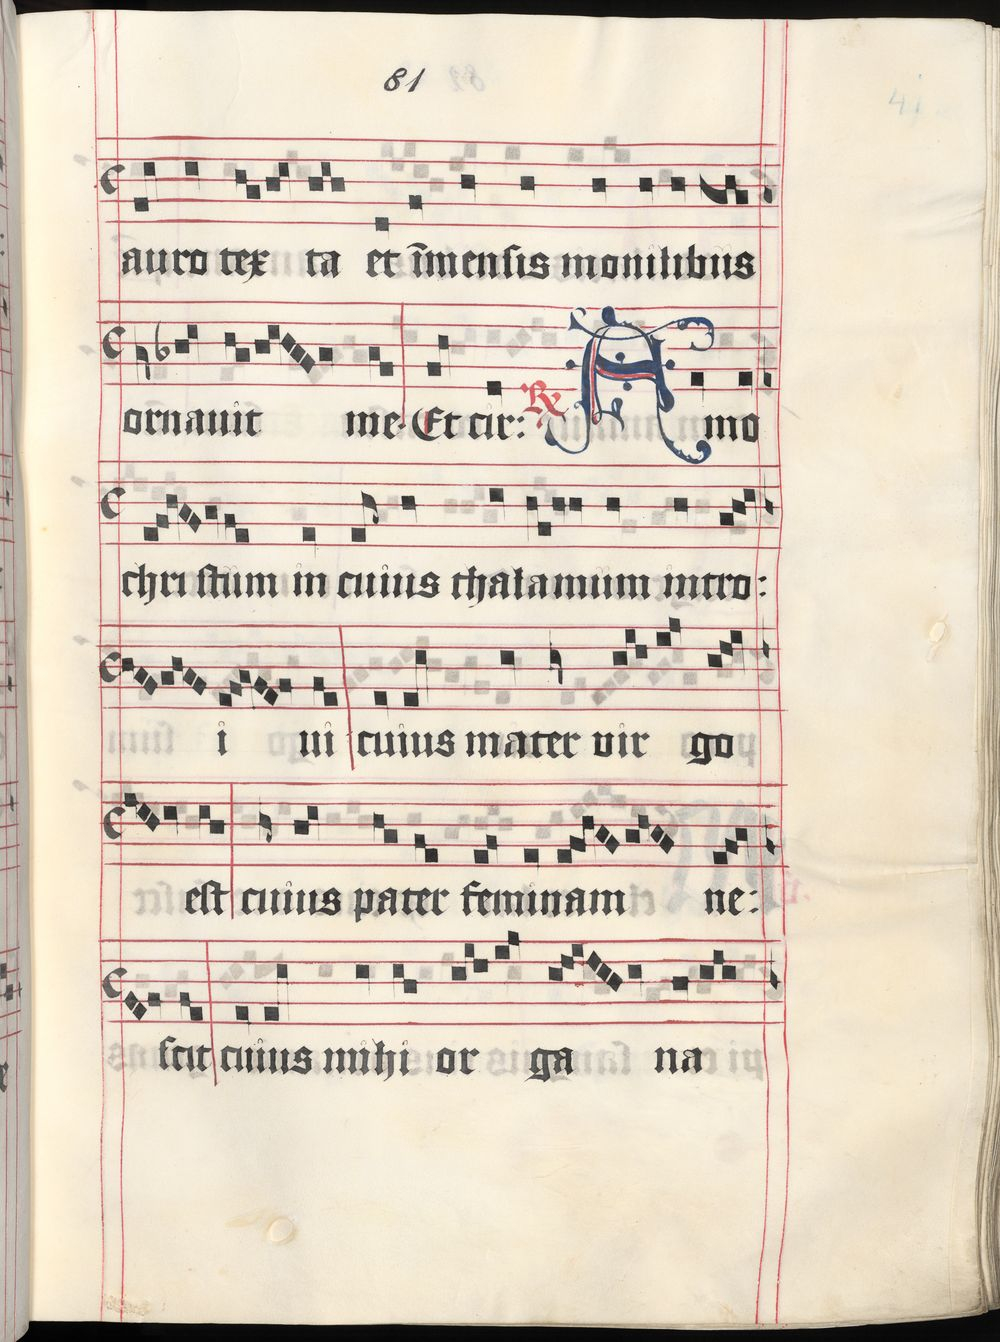 81
auro tex ta et īmensis monilibus
ornauit me. Et cir: ℟ A mo
christum in cuius thalamum intro:
i ui cuius mater vir go
est cuius pater feminam ne:
scit cuius mihi or ga na